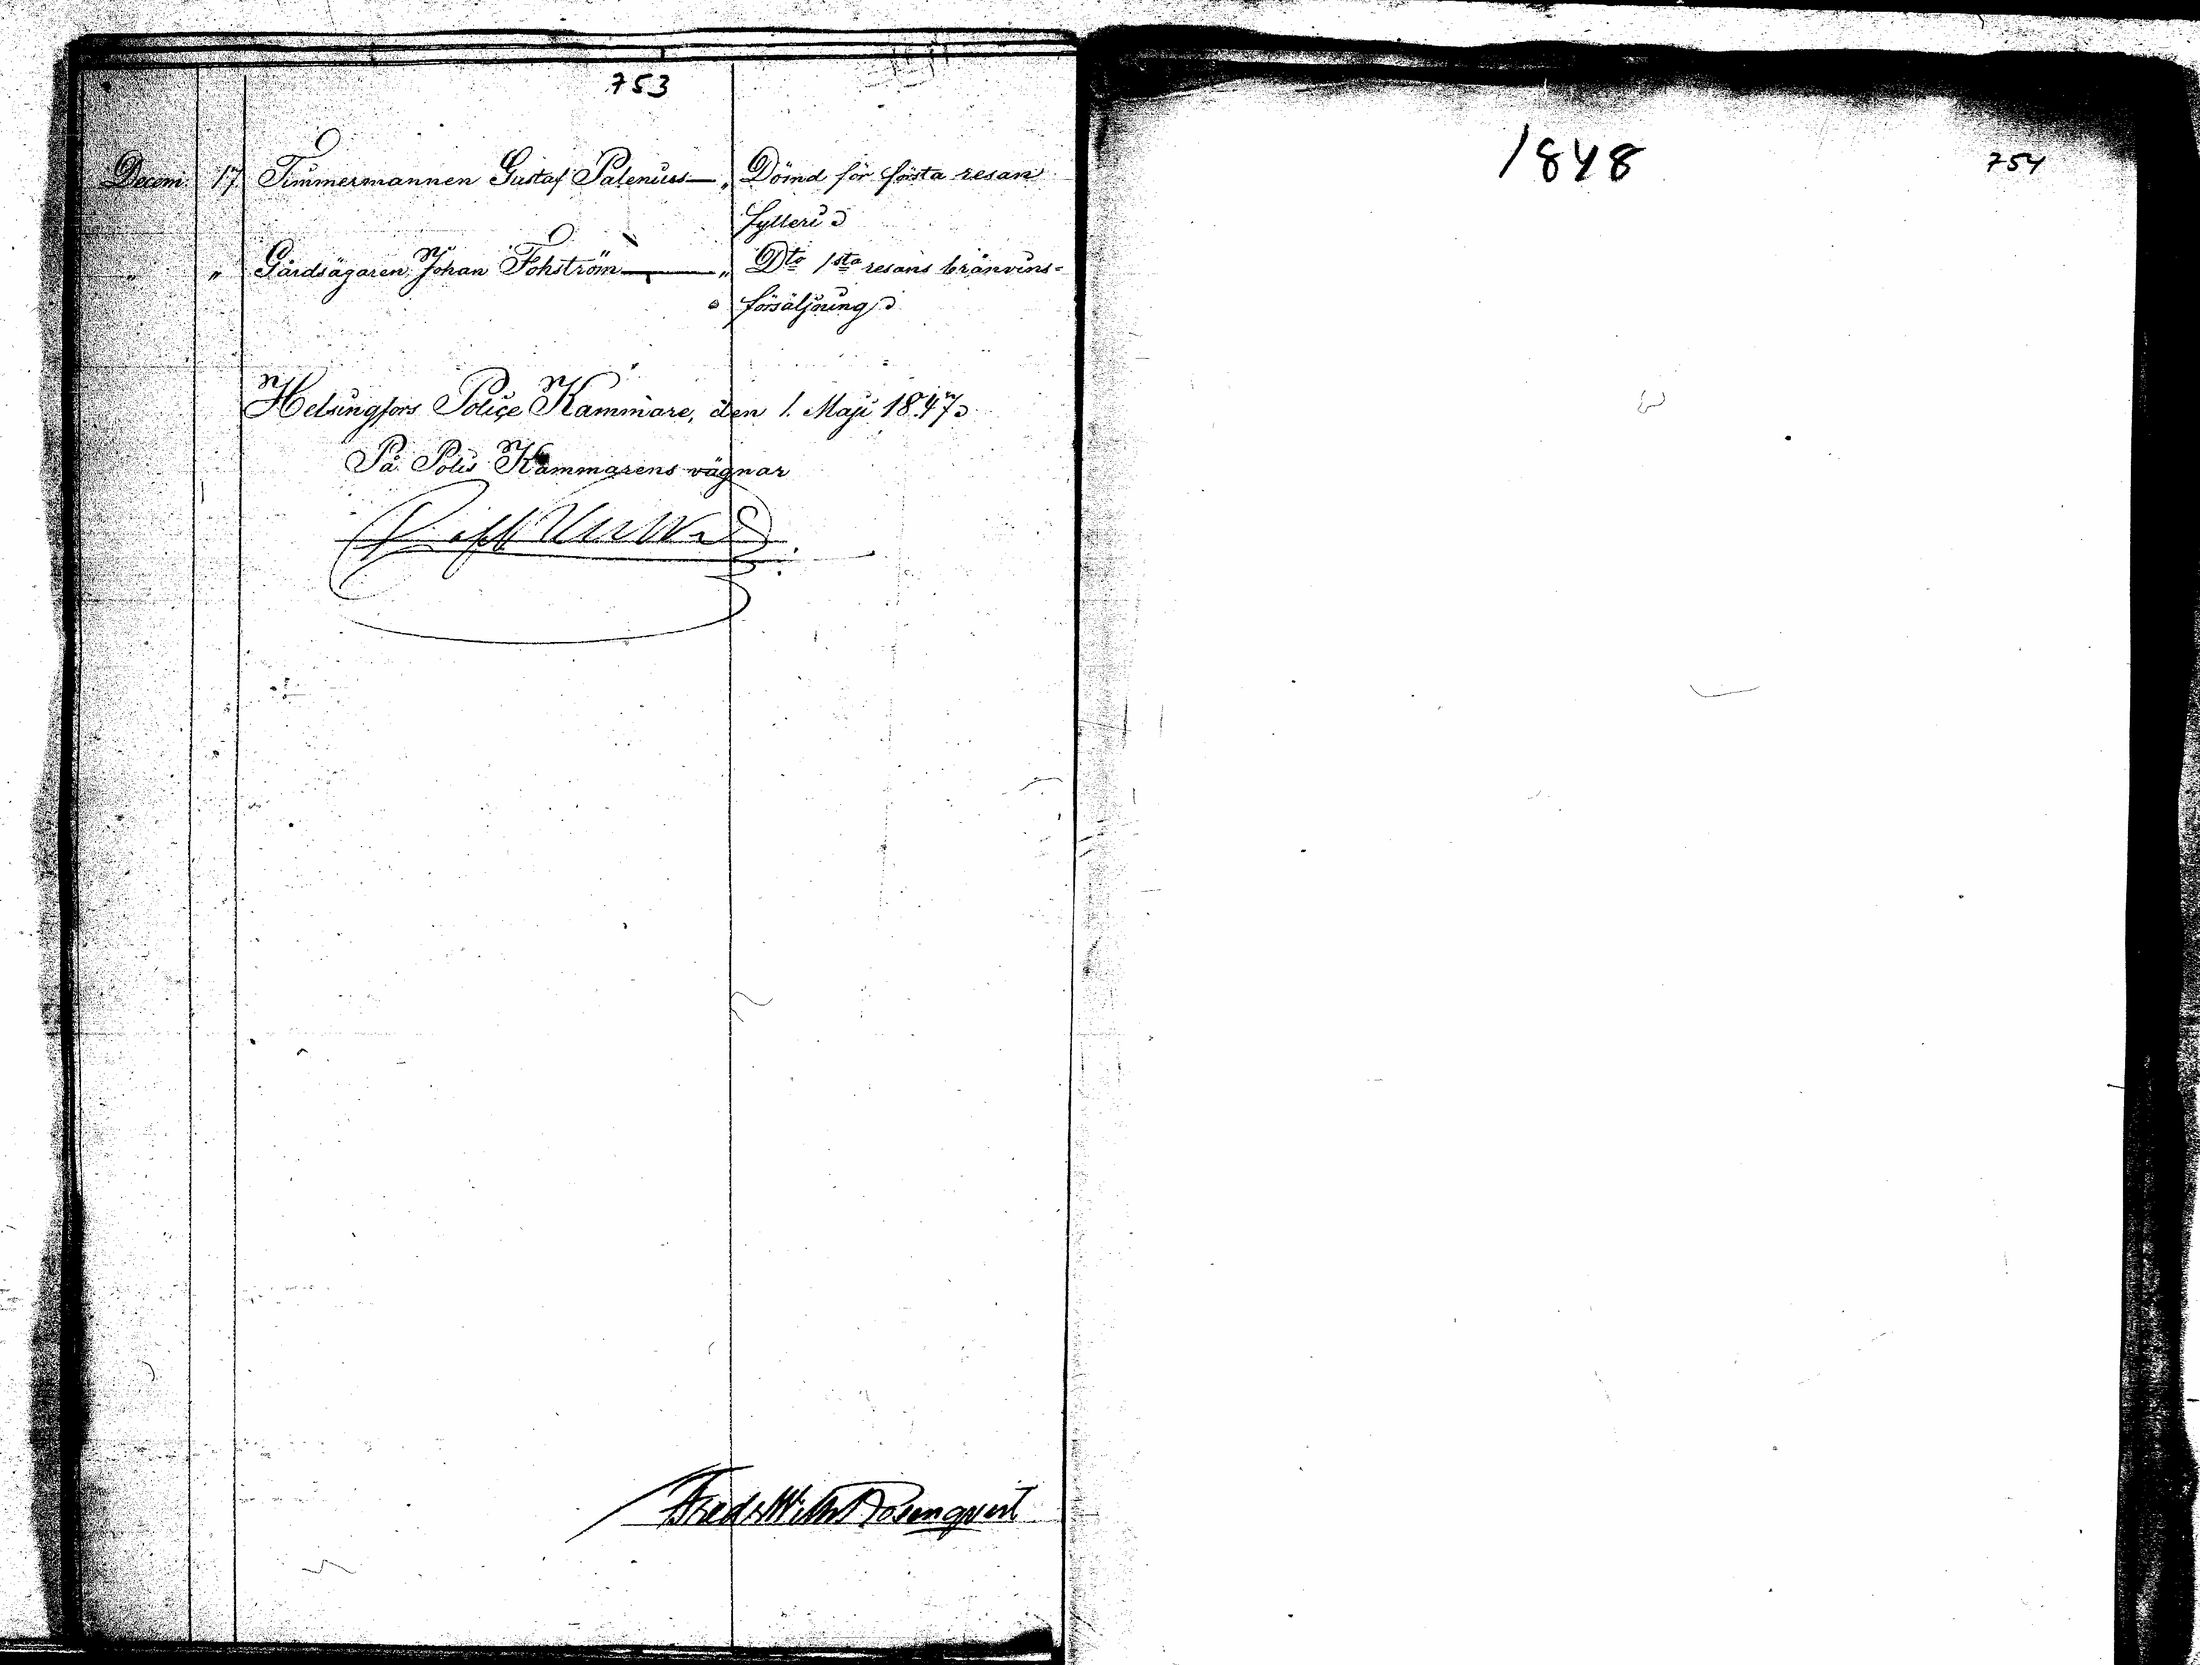 753
Decem: 17. Timmermannen Gustaf Palenius — „ Dömd för första resan
fylleri.
„ „ Gårdsägaren Johan Fohström — „ Dto 1sta resans bränvins=
försäljning.
Helsingfors Poliçe Kammare, den 1. Maji 1847.
På Polis Kammarens vägnar
Fredr Wilh Rosenqvist
1848
754